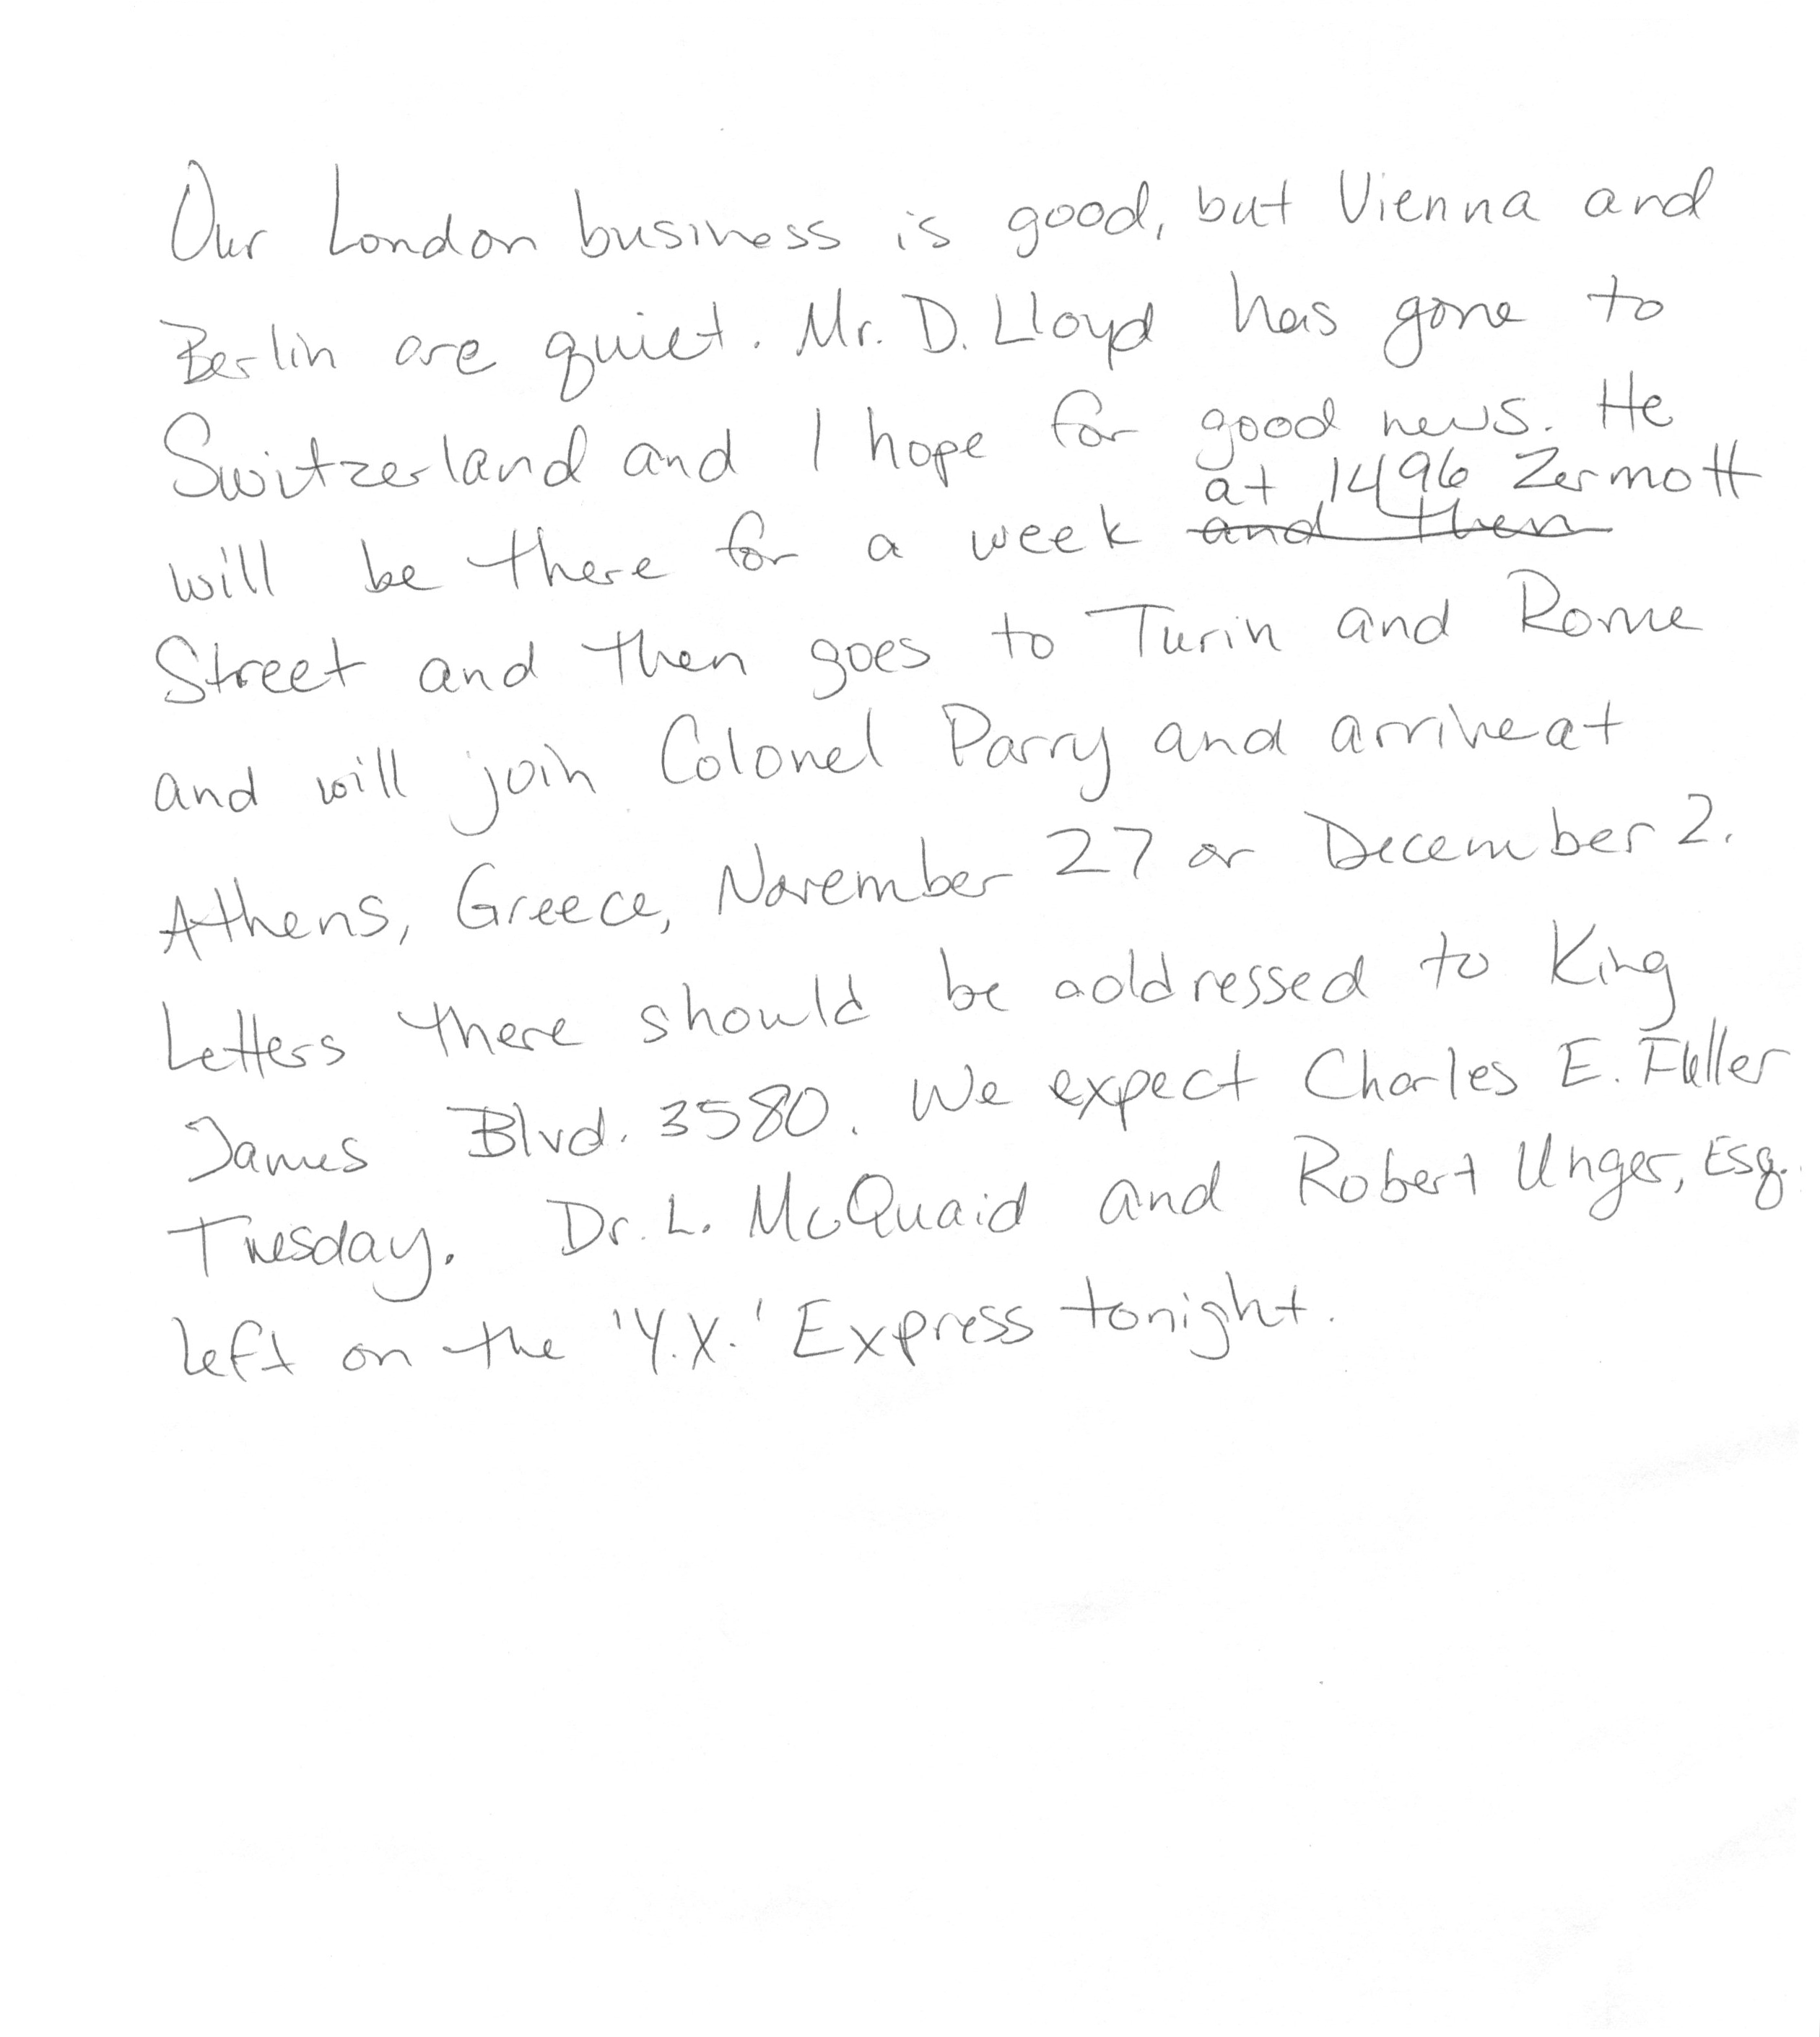 Our London business is good, but Vienna and
Berlin are quiet. Mr. D. Lloyd has gone to
Switzerland and I hope for good news. He
will be there for a week at 1496 Zermott
and then
Street and then goes to Turin and Rome
and will join Colonel Parry and arrive at
Athens, Greece, November 27 or December 2.
Letters there should be addressed to King
James Blvd. 3580. We expect Charles E. Fuller
Tuesday. Dr. L. McQuaid and Robert Unger, Esq.
left on the 'Y.X.' Express tonight.